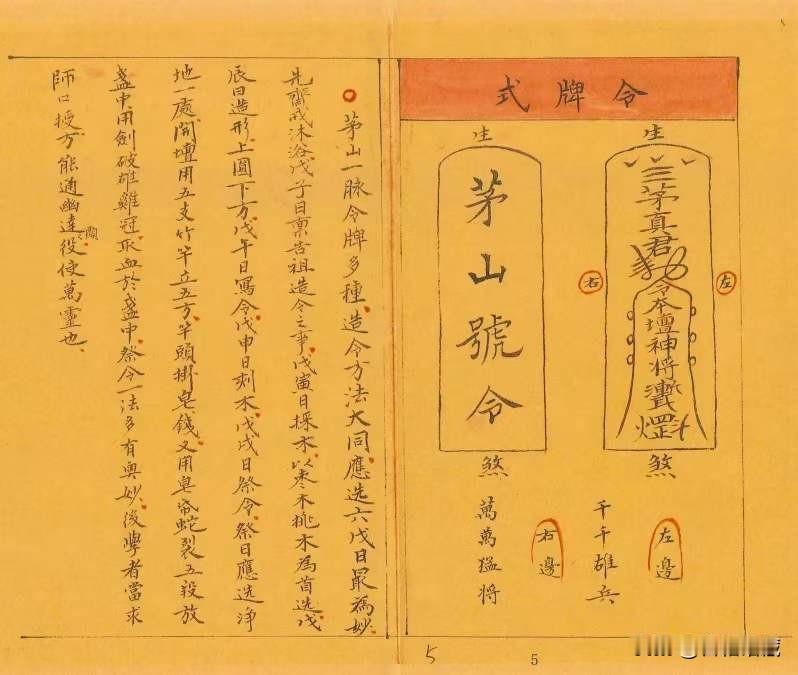 令牌式
生
三茅真君
令本壇神将
煞
左
生
茅山號令
煞
右
左邊
千千雄兵
右邊
萬萬猛将
茅山一脉令牌多種。造令方法大同應选六戊日最為妙。
先齋戒沐浴戊子日禀告祖造令之事。戊寅日採木。以枣木桃木為首选戊
辰日造形上圓下方戊午日寫令。戊申日刻木。戊戌日祭令。祭日應选淨
地一處。開壇用五支竹竿立五方。竿頭掛皂錢。又用皂帋蛇裂五段放
盏中用劍破雄雞冠。取血於盏中。祭令一法多有奥妙。後學者當求
師口授方能通幽達陽。役使萬靈也。
5
5